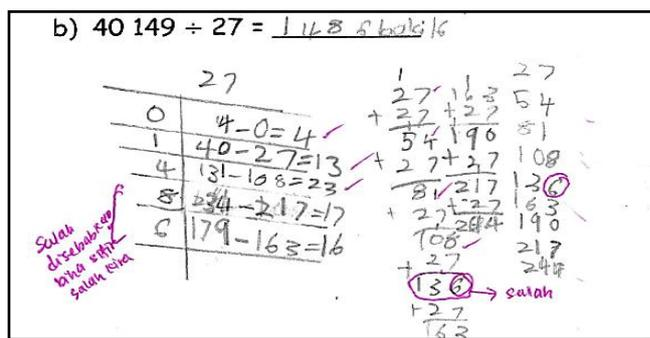 b) 40 149 ÷ 27 = 1486 baki 16
27
0 4-0=4
1 40-27=13
4 131-108=23
8 234-217=17
6 179-163=16
Salah
disebabkan
bina sifir
salah kira
1
27
+ 27
54
+ 27
81
+ 27
108
+ 27
136 → salah
+27
163
1
163
+27
190
+27
217
+27
244
27
54
81
108
136
163
190
217
244